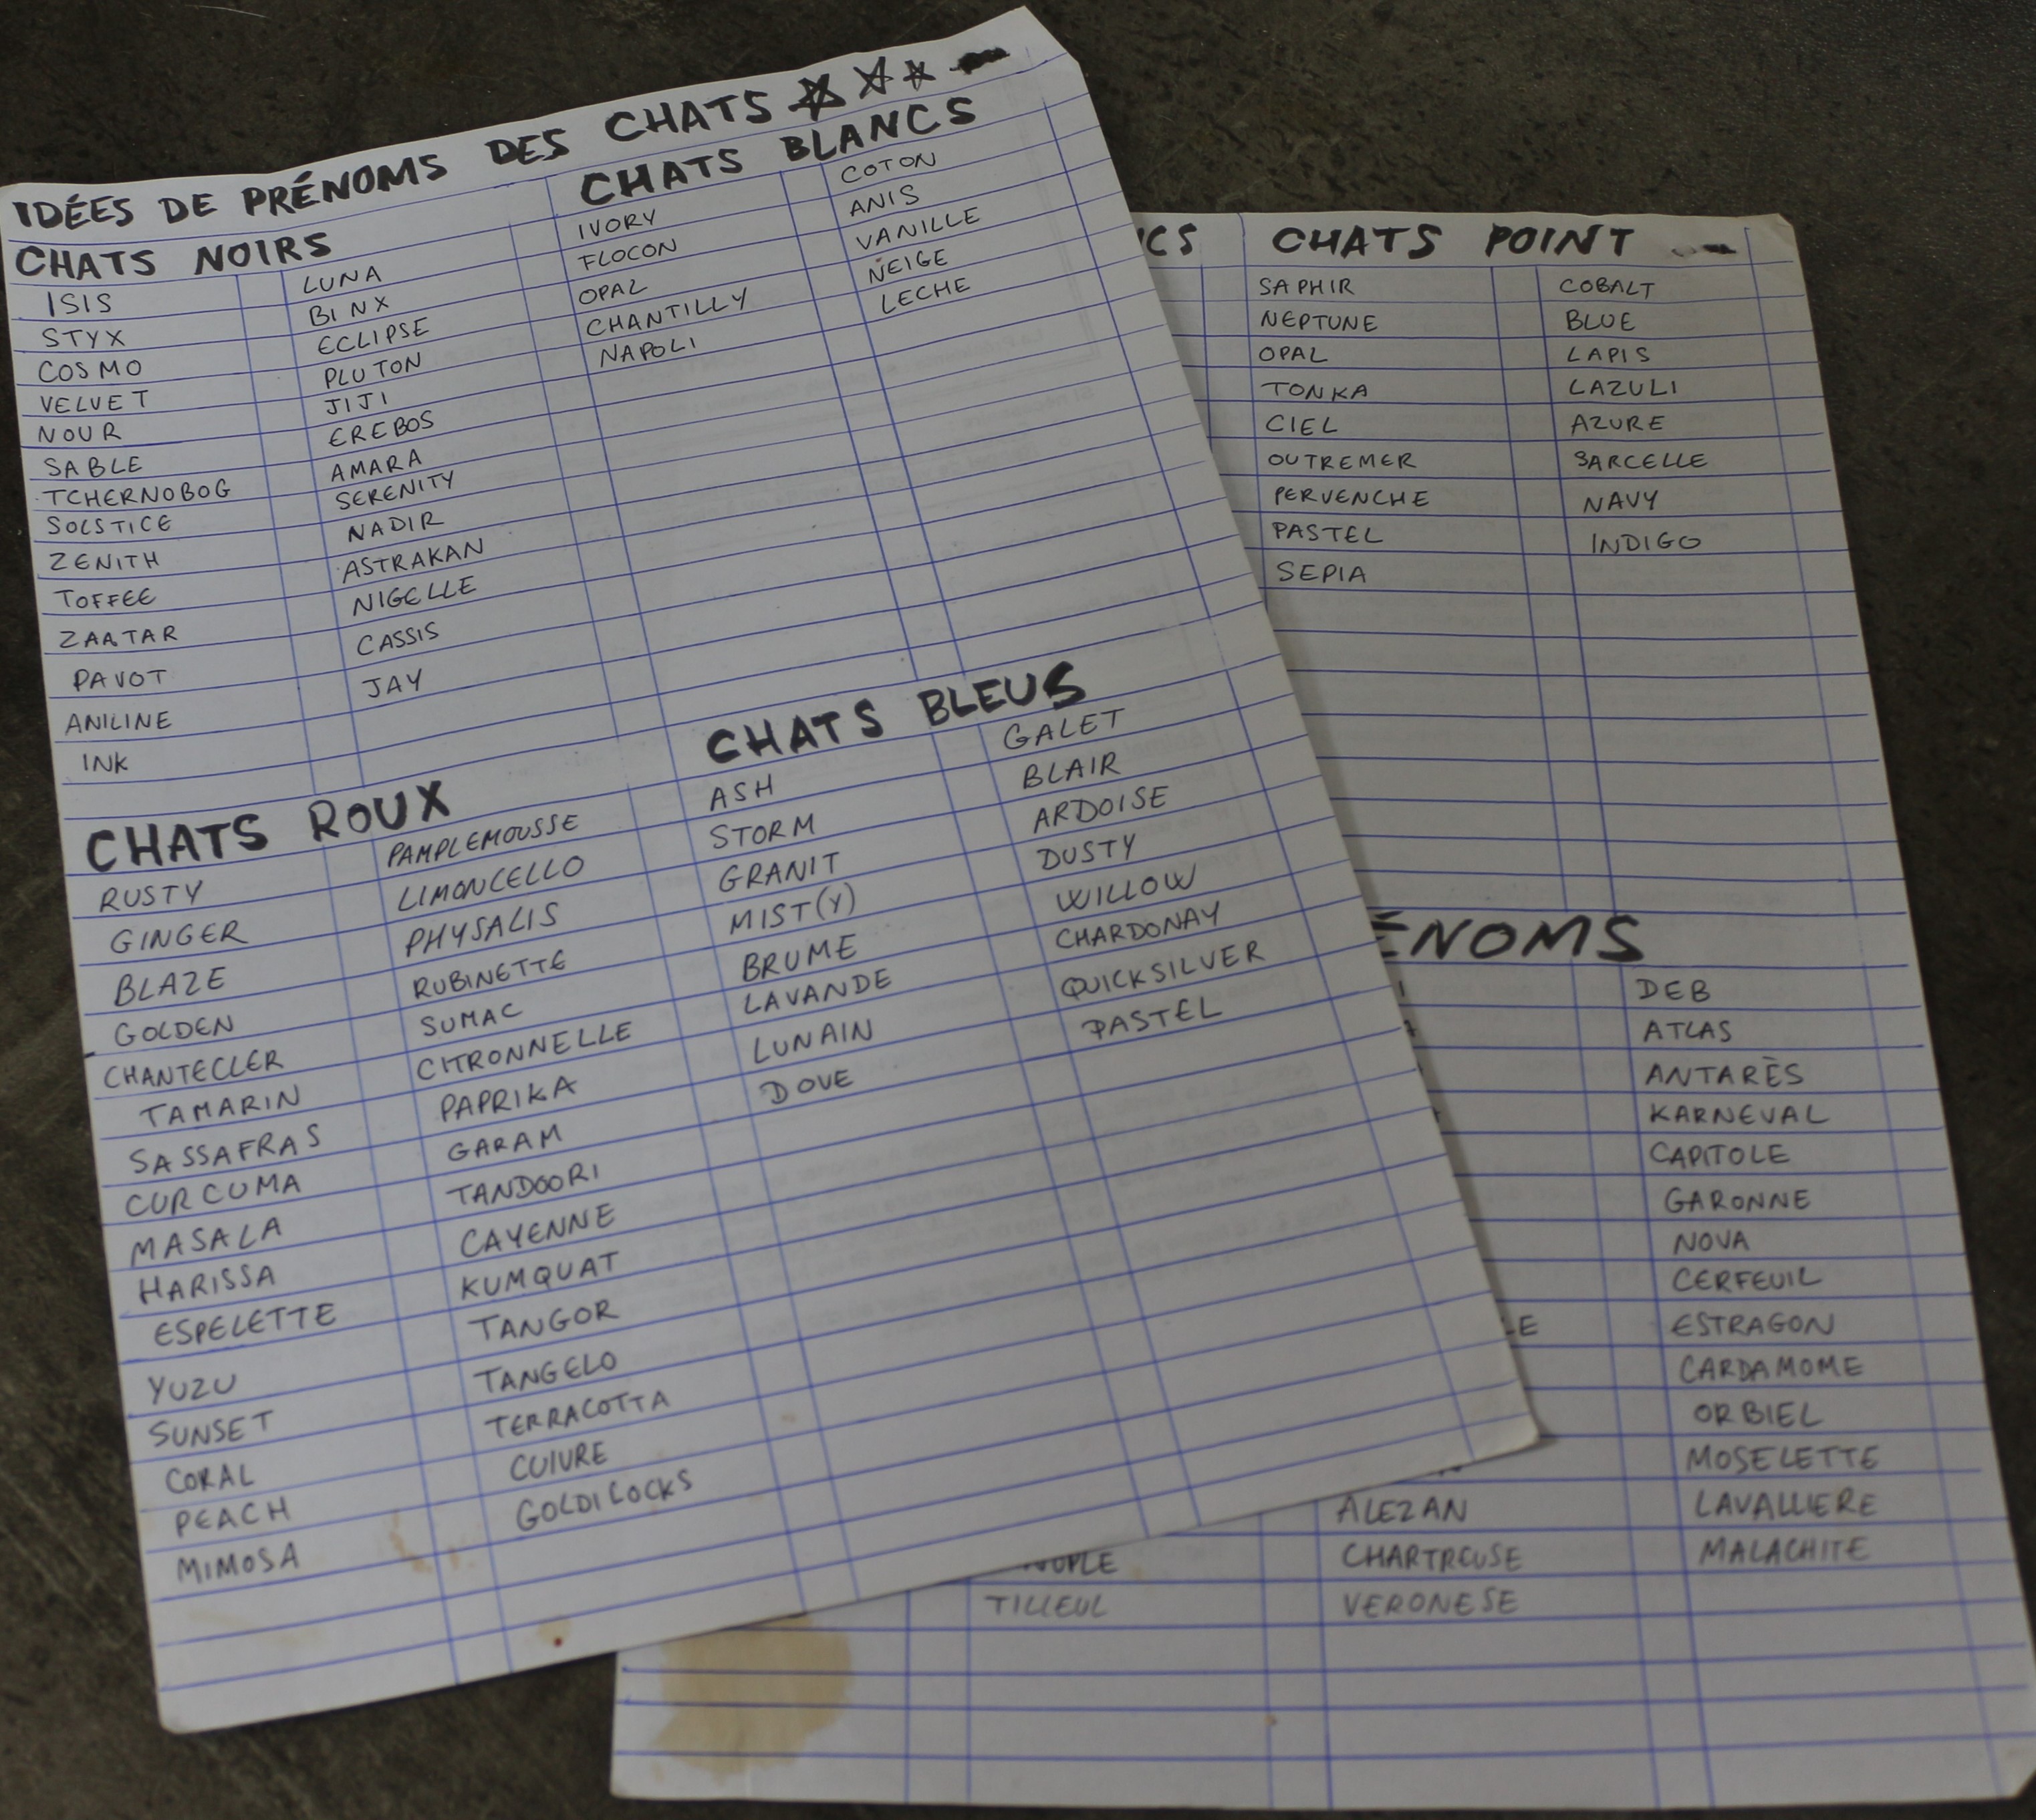 IDÉES DE PRÉNOMS DES CHATS
CHATS NOIRS
ISIS
STYX
COSMO
VELVET
NOUR
SABLE
TCHERNOBOG
SOLSTICE
ZENITH
TOFFEE
ZAATAR
PAVOT
ANILINE
INK
LUNA
BINX
ECLIPSE
PLUTON
JIJI
EREBOS
AMARA
SERENITY
NADIR
ASTRAKAN
NIGELLE
CASSIS
JAY
CHATS BLANCS
IVORY
FLOCON
OPAL
CHANTILLY
NAPOLI
COTON
ANIS
VANILLE
NEIGE
LECHE
CHATS ROUX
RUSTY
GINGER
BLAZE
GOLDEN
CHANTECLER
TAMARIN
SASSAFRAS
CURCUMA
MASALA
HARISSA
ESPELETTE
YUZU
SUNSET
CORAL
PEACH
MIMOSA
PAMPLEMOUSSE
LIMONCELLO
PHYSALIS
RUBINETTE
SUMAC
CITRONNELLE
PAPRIKA
GARAM
TANDOORI
CAYENNE
KUMQUAT
TANGOR
TANGELO
TERRACOTTA
CUIVRE
GOLDILOCKS
CHATS BLEUS
ASH
STORM
GRANIT
MIST(Y)
BRUME
LAVANDE
LUNAIN
DOVE
GALET
BLAIR
ARDOISE
DUSTY
WILLOW
CHARDONAY
QUICKSILVER
PASTEL
CS
CHATS POINT
SAPHIR
NEPTUNE
OPAL
TONKA
CIEL
OUTREMER
PERVENCHE
PASTEL
SEPIA
COBALT
BLUE
LAPIS
LAZULI
AZURE
SARCELLE
NAVY
INDIGO
ÉNOMS
LE
OPLE
TILLEUL
ALEZAN
CHARTREUSE
VERONESE
DEB
ATLAS
ANTARÈS
KARNEVAL
CAPITOLE
GARONNE
NOVA
CERFEUIL
ESTRAGON
CARDAMOME
ORBIEL
MOSELETTE
LAVALLIERE
MALACHITE